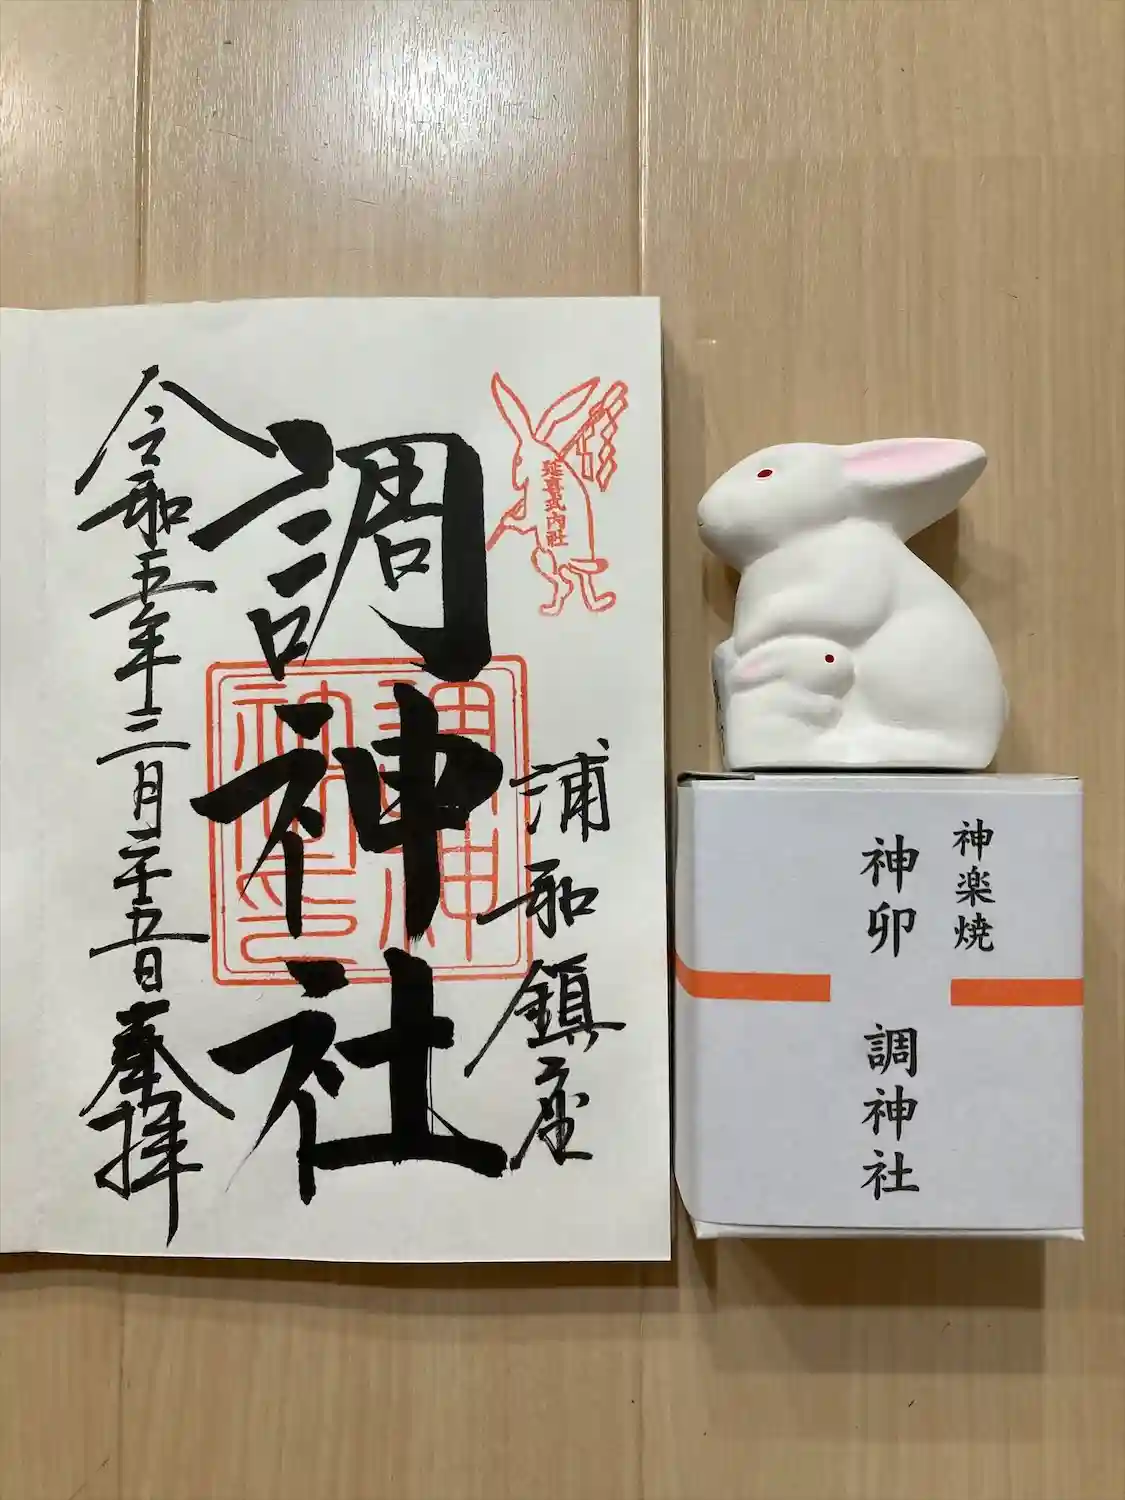 延喜式内社
浦和鎮座
調神社
令和五年二月二十五日奉拝
神楽焼
神卯 調神社